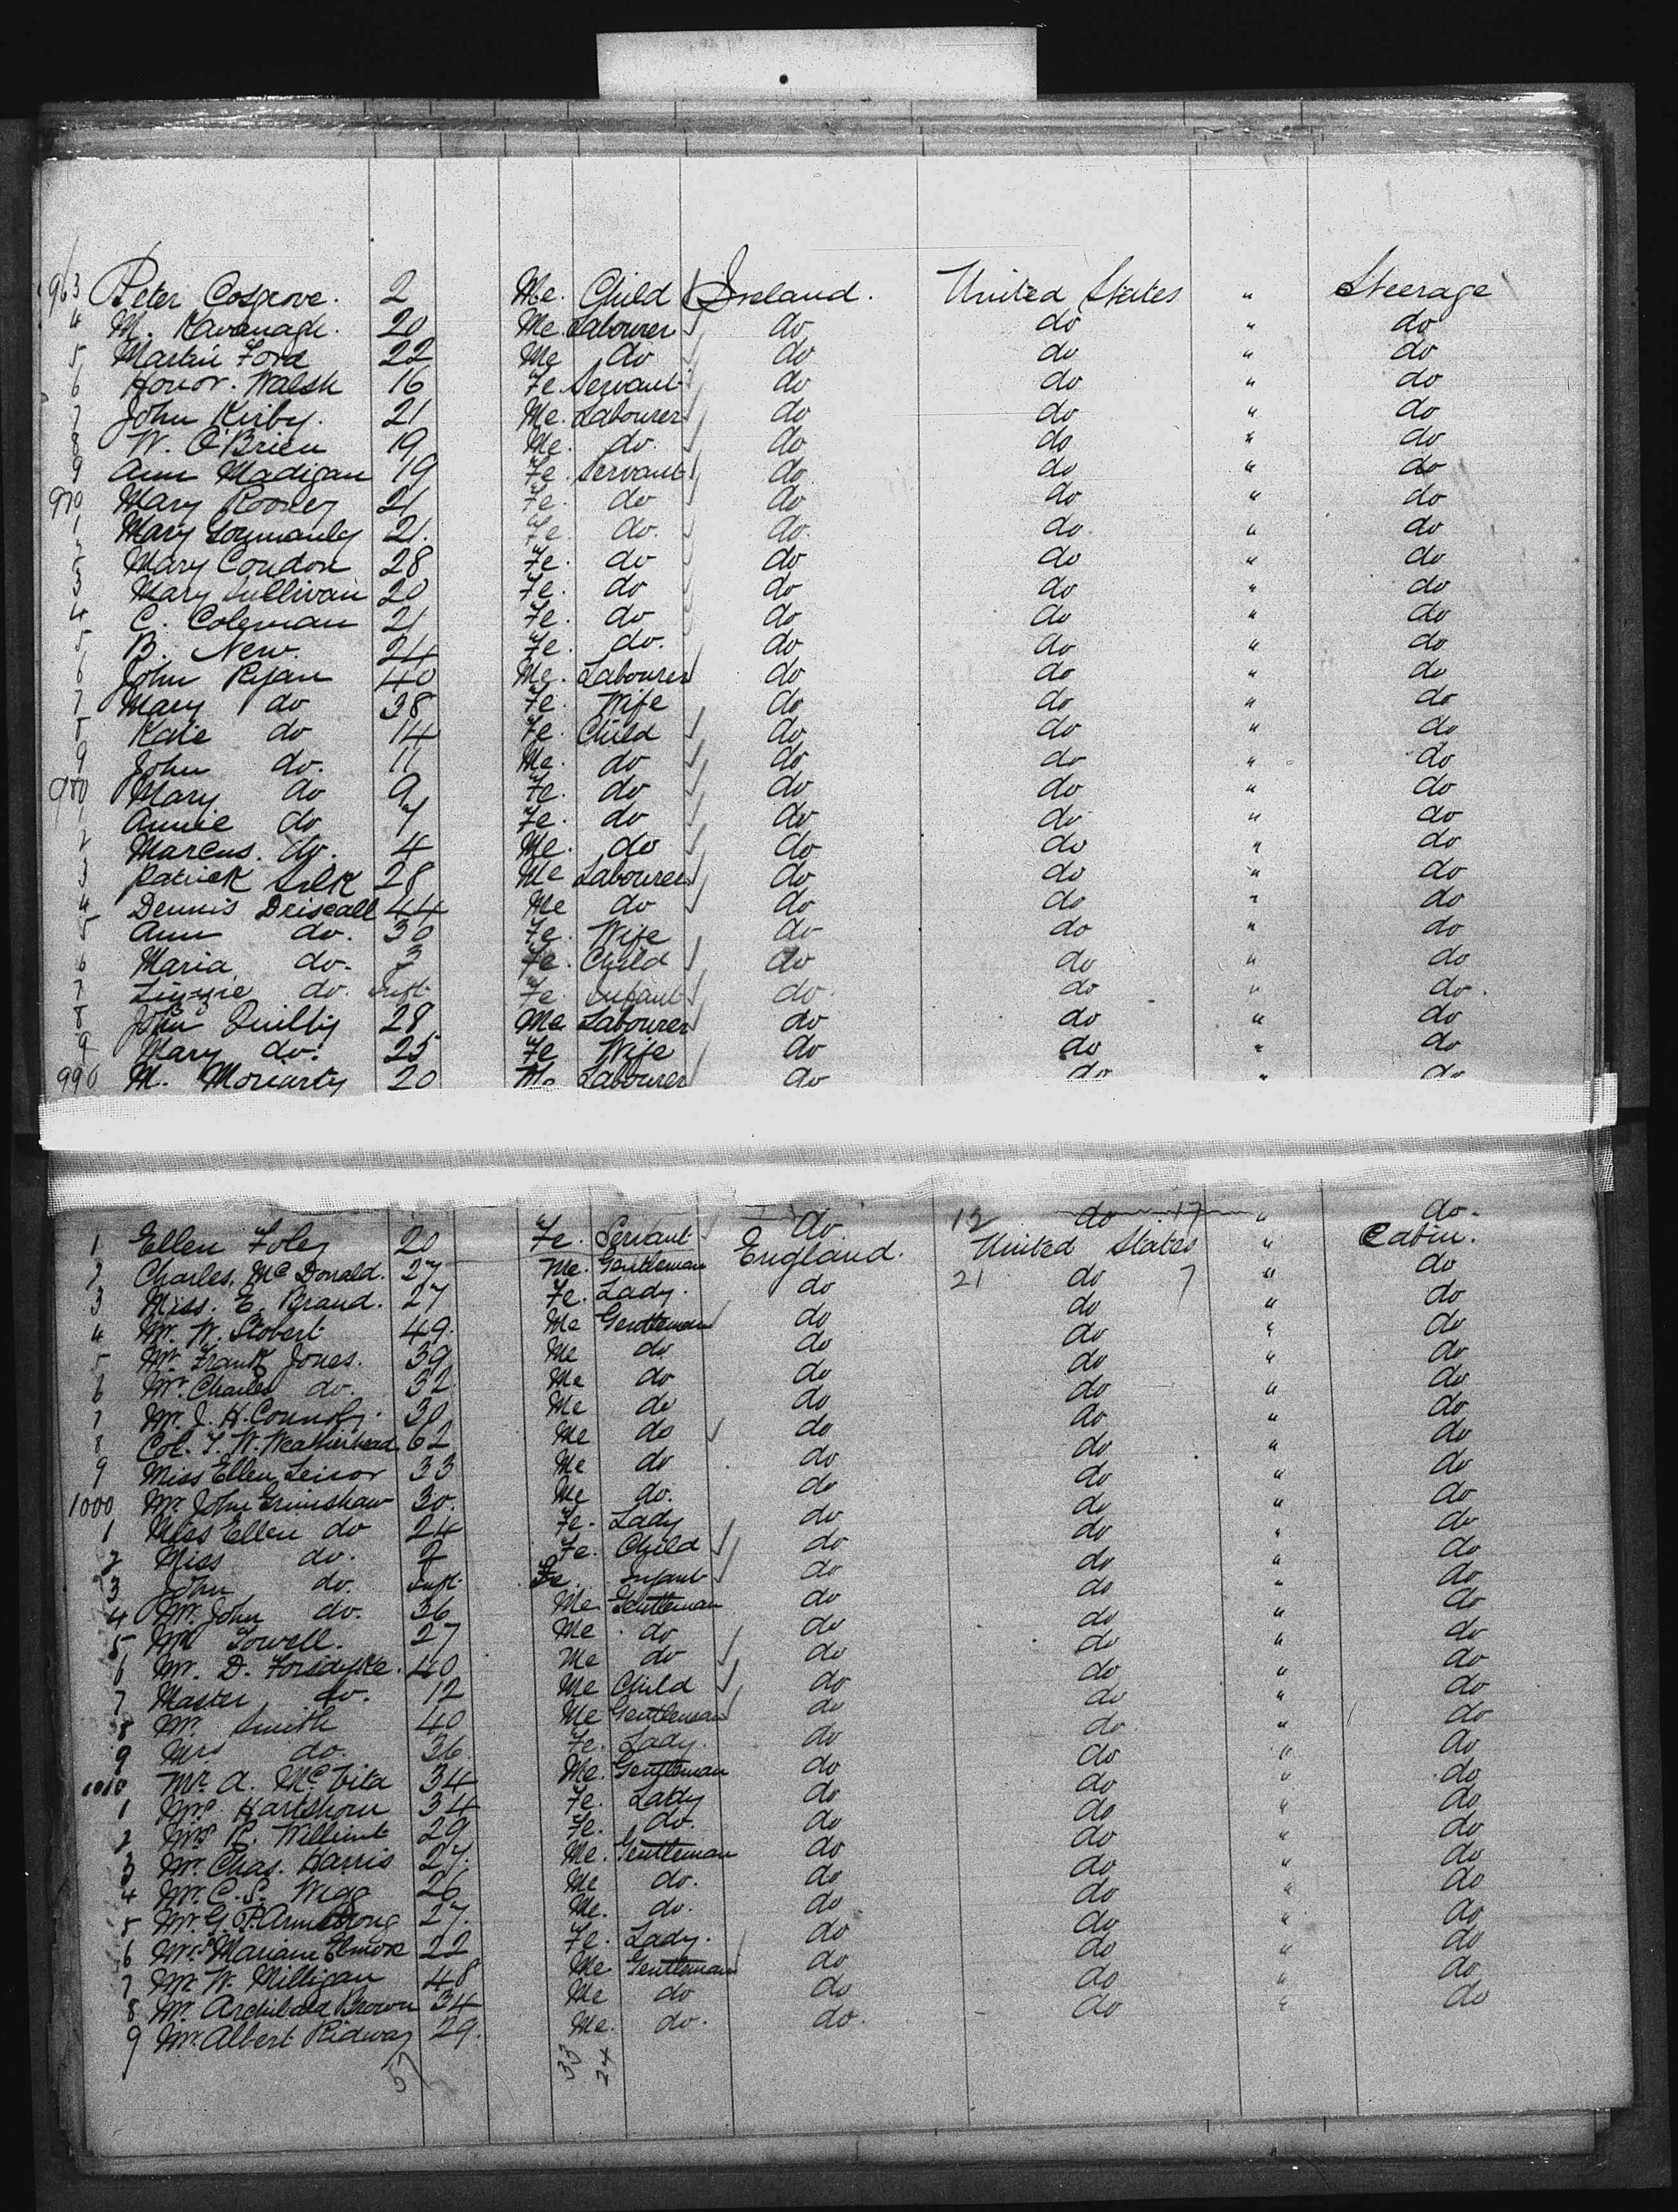 963 Peter Cosgrove. 2 Me. Child Ireland. United States " Steerage
4 M. Kavanagh. 20 Me. Labourer do do " do
5 Martin Ford 22 Me do do do " do
6 Honor. Walsh 16 Fe. Servant do do " do
7 John Kirby. 21 Me. Labourer do do " do
8 W. O'Brien 19 Me. do. do do " do
9 Ann Madigan 19 Fe. Servant do do " do
970 Mary Rooney 21 Fe. do do do " do
1 Mary Gormanly 21. Fe. do. do. do. " do
2 Mary Condon 28 Fe. do do do " do
3 Mary Sullivan 20 Fe. do do do " do
4 C. Coleman 21 Fe. do do do " do
5 B. New. 24 Fe. do. do do " do
6 John Ryan 40 Me. Labourer do do " do
7 Mary do 38 Fe. Wife do do " do
8 Kate do 14 Fe. Child do do " do
9 John do. 11 Me. do do do " do
980 Mary do 9 Fe. do do do " do
1 Annie do 7 Fe. do do do " do
2 Marcus. do. 4 Me. do do do " do
3 Patrick Silk 28 Me Labourer do do " do
4 Dennis Driscall 44 Me do do do " do
5 Ann do. 30 Fe. Wife do do " do
6 Maria do. 3 Fe. Child do do " do
7 Lizzie do. Inft. Fe. Infant do. do " do.
8 John Quilty 28 Me Labourer do do " do
9 Mary do. 25 Fe Wife do do " do
990 M. Moriarty 20 Me Labourer do do " do
1 Ellen Foley 20 Fe. Servant do. 12 do 17 " do.
2 Charles. McDonald. 27 Me. Gentleman England. United States " Cabin.
3 Miss. E. Brand. 27 Fe. Lady. do 21 do 7 " do
4 Mr. W. Stobert 49. Me Gentleman do do " do
5 Mr Frank Jones. 39 Me do do do " do
6 Mr. Charles do. 32 Me do do do " do
7 Mr. J. H. Connoly. 30 Me do do do " do
8 Col. T. W. Weatherhead 62 Me do do do " do
9 Miss Ellen Leisor 33 Me do do do " do
1000 Mr. John Grimshaw 30. Me do. do do " do
1 Miss Ellen do 24 Fe. Lady do do " do
2 Miss do. 2 Fe. Child do do " do
3 John do. Inft. Fe. Infant do do " do
4 Mr. John do. 36 Me. Gentleman do do " do
5 Mr Towell. 27 Me do do do " do
6 Mr. D. Forsdyke. 40 Me do do do " do
7 Master do. 12 Me Child do do " do
8 Mr. Smith 40 Me Gentleman do do " do
9 Mrs do. 36 Fe. Lady. do do. " do
1010 Mr. A. Mc 34 Me. Gentleman do do " do
1 Mrs. Hartshorn 34 Fe. Lady do do " do
2 Mrs R. 29 Fe. do. do do " do
3 Mr. Chas. Harris 27. Me. Gentleman do do " do
4 Mr. C. S. Wigg 26 Me do. do do " do
5 Mr. G. P. Armstrong 27. Me. do. do do " do
6 Mrs. Mariam Elmore 22 Fe. Lady. do do " do
7 Mr. W. Milligan 48 Me. Gentleman do do " do
8 Mr. Archibald Brown 34 Me do do do " do
9 Mr. Albert Ridway 29. Me. do. do. do " do
57 33 24